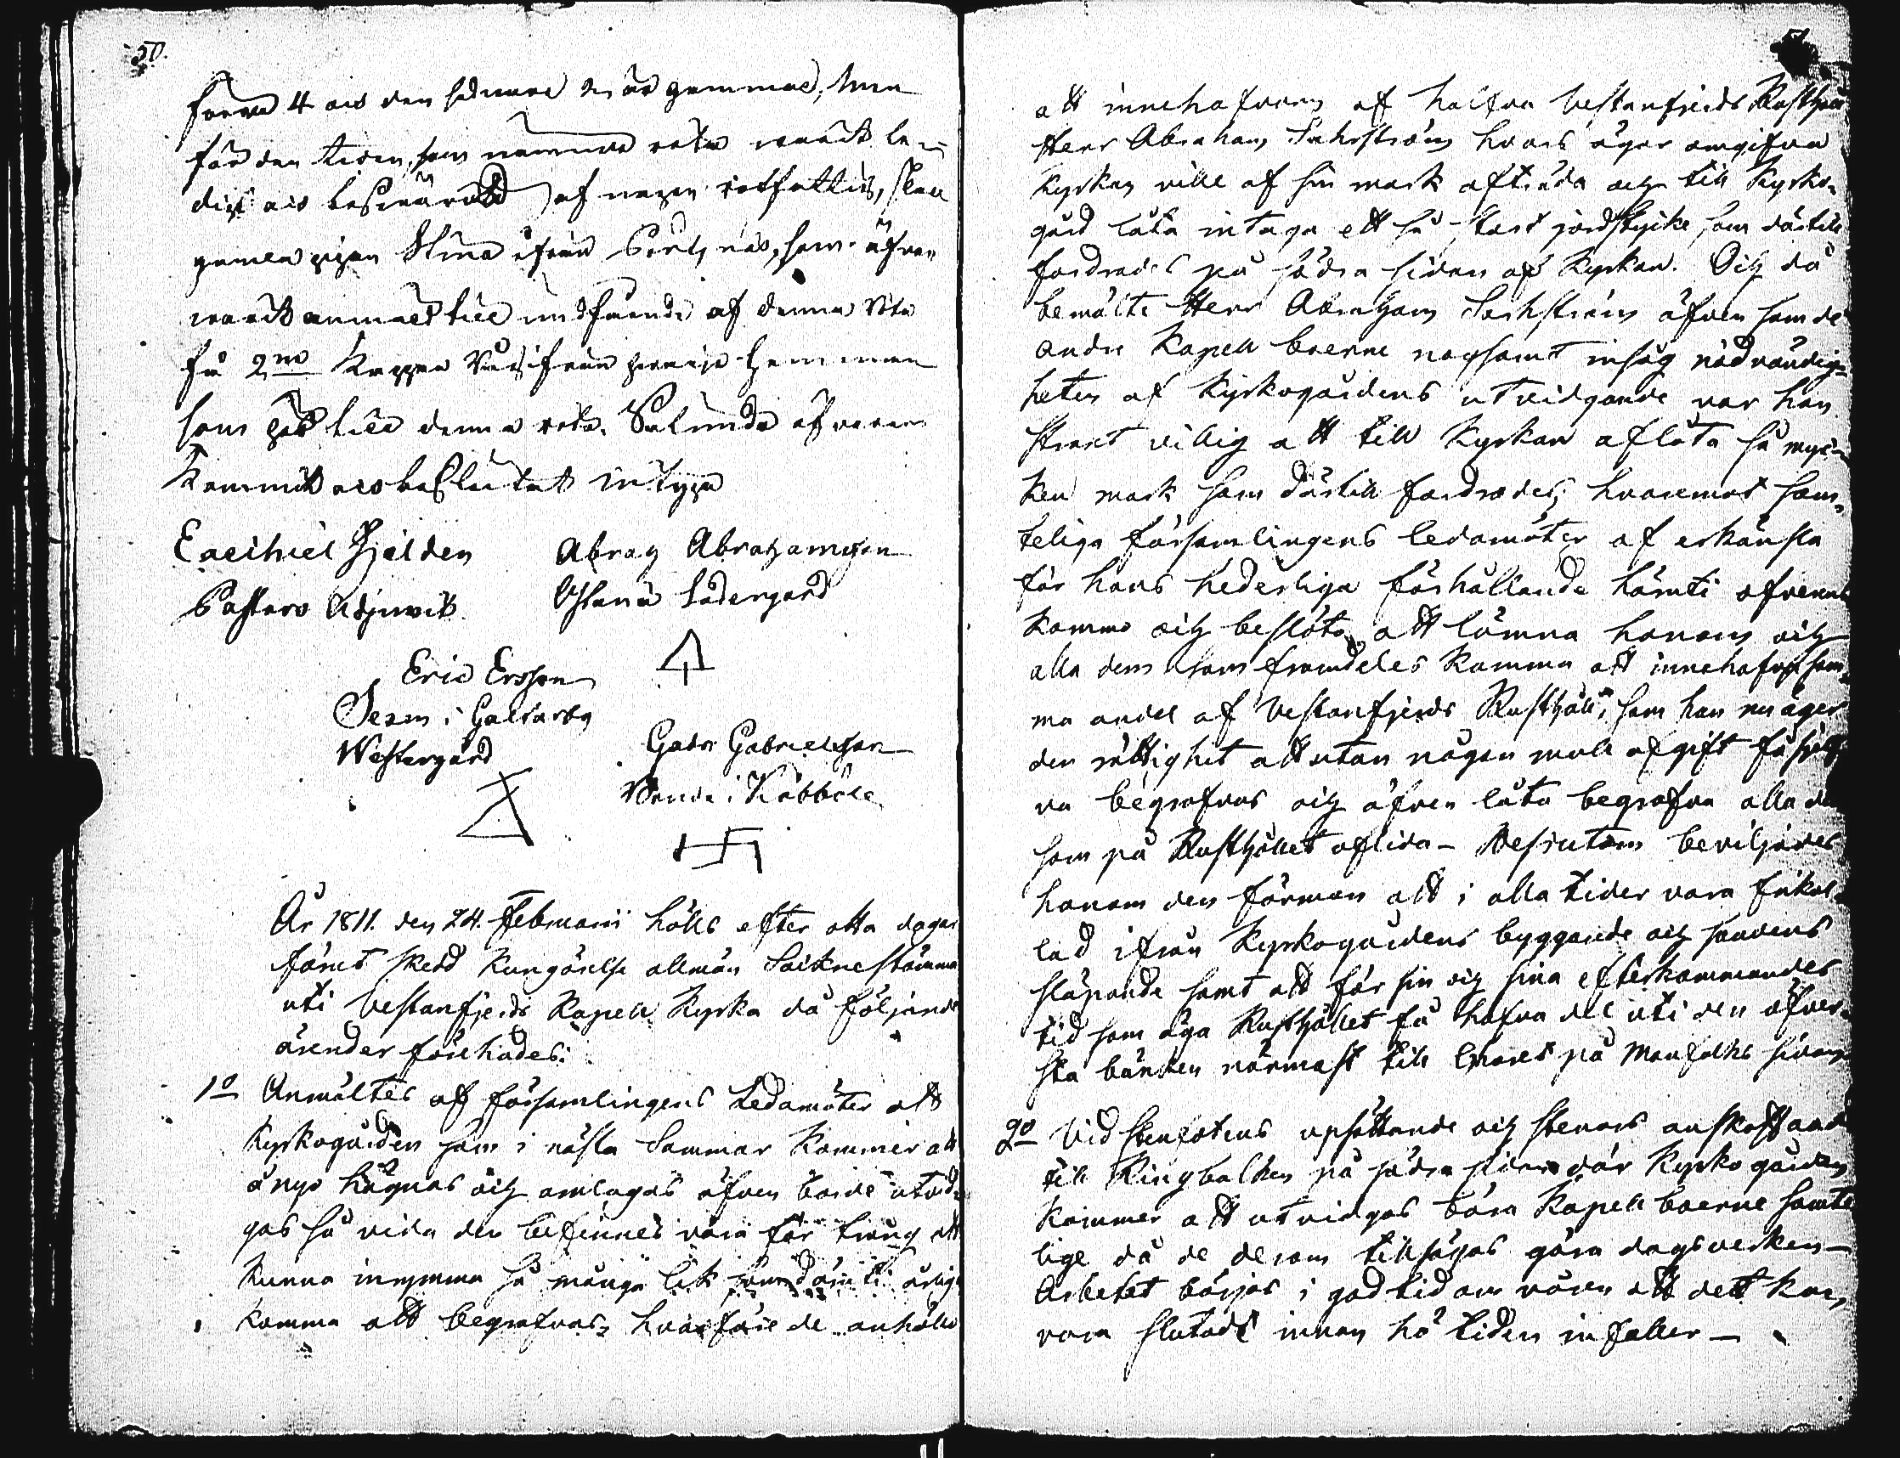 50.
förra 4 och den sednare 2 år gammal, men
för den tiden, som nämnde rota warit le-
dig och besvärad af någon rotfattig, skall
gamla pigan Stina ifrån Pörtznäs, som äfven
warit anmäld till undfående af denna Rota
få 2ne kappar Råg ifrån hwarje Hemman
som hör till denna rota. Sålunda öfverens-
kommit och beslutat intyga
Ezechiel Hjelden Abrah Abrahamsson
Pastors Adjunct Ystanå Södergård
Eric Ersson
Sexm i Galtarby
Westergård Gabr Gabrielsson
Bonde i Kåbböle
År 1811. den 24. Februarii hölls efter otta dagar
förut skedd kungörelse allmän Soiknestämma
uti Vestanfjerds Kapell Kyrka då följande
ärender förehades:
1o Anmältes af församlingens Ledamöter att
Kyrkogården som i nästa Sommar kommer att
ånyo hägnas och omlagas äfven borde utvid-
gas så vida den befinnes vara för trång att
kunna inrymma så många lik som däruti årlig
komma att begrafvas, hvarföre de anhöllo
51
att innehafvaren af halfva Vestanfjerds Rusthåll
Herr Abraham Sahlström hvars ägor omgifva
Kyrkan ville af sin mark afträda och till Kyrko-
gård låta intaga ett så stort jordstycke som därtill
fordrades på södra sidan af Kyrkan. Och då
bemälte Herr Abraham Sahlström äfven som de
andre Kapell boerne nogsamt insåg nödvändig-
heten af Kyrkogårdens utvidgande var han
straxt villig att till Kyrkan aflåta så myc-
ken mark som därtill fordrades, hvaremot sam-
teliga församlingens ledamöter af erkänsla
för hans hederliga förhållande häruti öfverens
kommo och beslöto att lämna honom och
alla dem som framdeles komma att innehafva sam-
ma andel af Vestanfjerds Rusthåll, som han nu äger
den rättighet att utan någon mull afgift få själf
va begrafvas och äfven låta begrafva alla de
som på Rusthållet aflida - Dessutom beviljades
honom den förmon att i alla tider vara frikal-
lad ifrån Kyrkogårdens byggande och sandens
släpande samt att för sin och sina efterkommandes
tid som äga Rusthållet få hafva del uti den öfver-
sta bänken närmast till Choret på Manfolks sidan
2o Vid stenfotens upsättande och stenars anskaffande
till Ringbalken på södra sidan där Kyrkogården
kommer att utvidgas böra Kapell boerne samte
lige då de derom tillsägas göra dagsverken -
Arbetet börjas i god tid om våren att dett kan
vara slutadt innan hö tiden infaller -